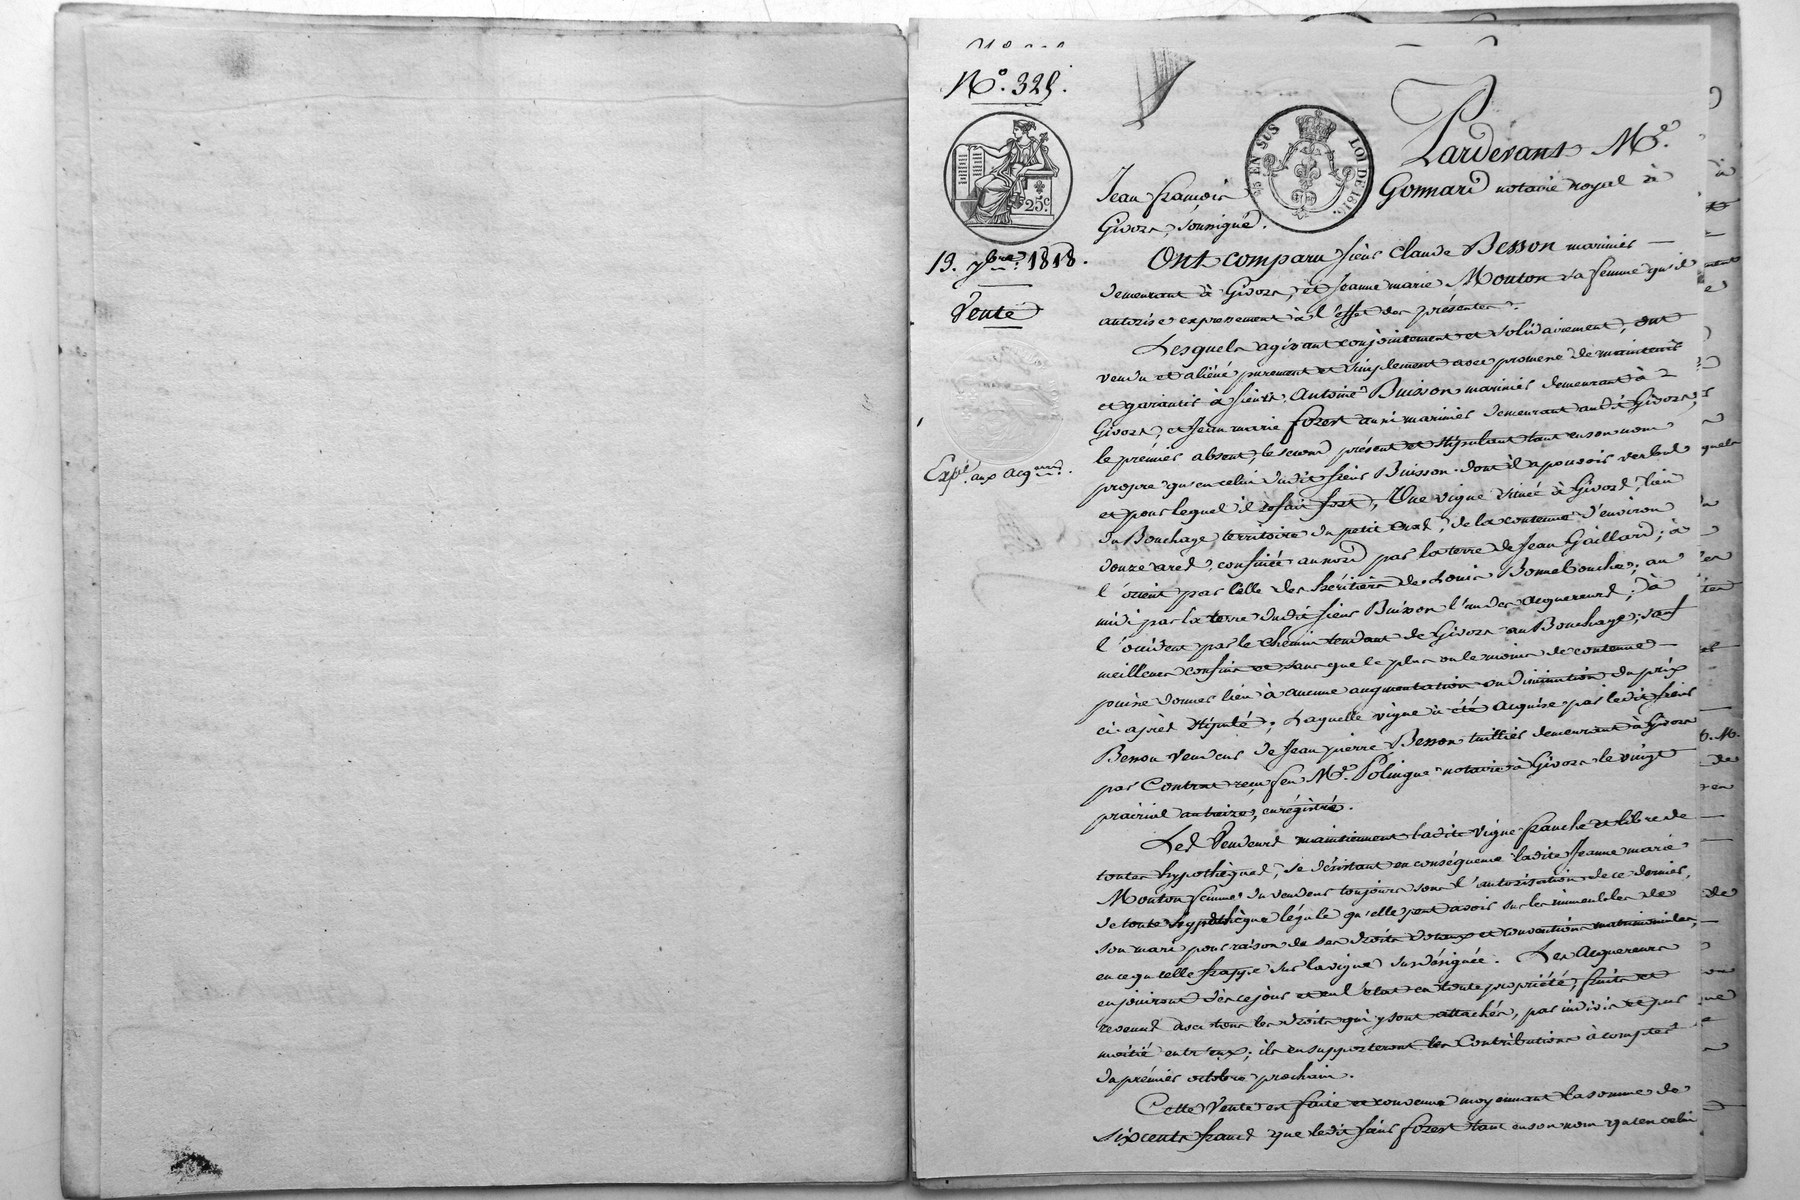 N.º 325.
25 EN SUS
LOI DE 1816.
25.c
Pardevant M.e
Jean françois Gonnard notaire royal à
Givors, soussigné.
13. 7bre 1818.
Vente
Exp.é aux acq.eurs.
Ont comparu sieur claude Besson marinier
demeurant à Givors, et Jeanne marie Mouton sa femme qu'il
autorise expressement à l'effet des présentes.
Lesquels agissant conjointement et solidairement, ont
vendu et aliéné purement et simplement avec promesse de maintenir
et garantir à sieurs Antoine Buisson marinier demeurant à
Givors, et Jean marie forest aussi marinier demeurant audit Givors,
le prémier absent, le second présent et stipulant tant en son nom
propre qu'en celui dudit sieur Buisson dont il a pouvoir verbal
et pour lequel il se fait fort, Une vigne située à Givors, lieu
du Bouchage, territoire du petit Crat, de la contenue d'environ
douze ares, confinée au nord par la terre de Jean Gaillard; à
l'orient par celle des héritiers de Louis Bonnebouche; au
midi par la terre dudit sieur Buisson l'un des acquereurs; à
l'occident par le chemin tendant de Givors au Bouchage; sauf
meilleurs confins et sans que le plus ou le moins de contenue
puisse donner lieu à aucune augmentation ou diminution du prix
ci-après stipulé; Laquelle vigne a été acquise par ledit sieur
Besson vendeur de Jean pierre Besson tuillier demeurant à Givors
par Contrat reçu feu M.e Polingue notaire à Givors le vingt
prairial an treize, enrégistré.
Les Vendeurs maintiennent ladite vigne franche et libre de
toutes hypothèques, se désistant en conséquence ladite Jeanne marie
Mouton femme du vendeur toujours sous l'autorisation de ce dernier,
de toute hypothèque légale qu'elle peut avoir sur les immeubles de
son mari pour raison de ses droits dotaux et conventions matrimoniales,
en ce qu'elle frappe sur la vigne susdésignée. Les acquereurs
en jouiront dès ce jour et en l'état en toute propriété, fruits et
revenus avec tous les droits qui y sont attachés, par indivis et par
moitié entr'eux; ils en supporteront les Contributions à compter
du prémier octobre prochain.
Cette Vente est faite et convenue moyennant la somme de
six cents francs que ledit sieur forest tant en son nom qu'en celui